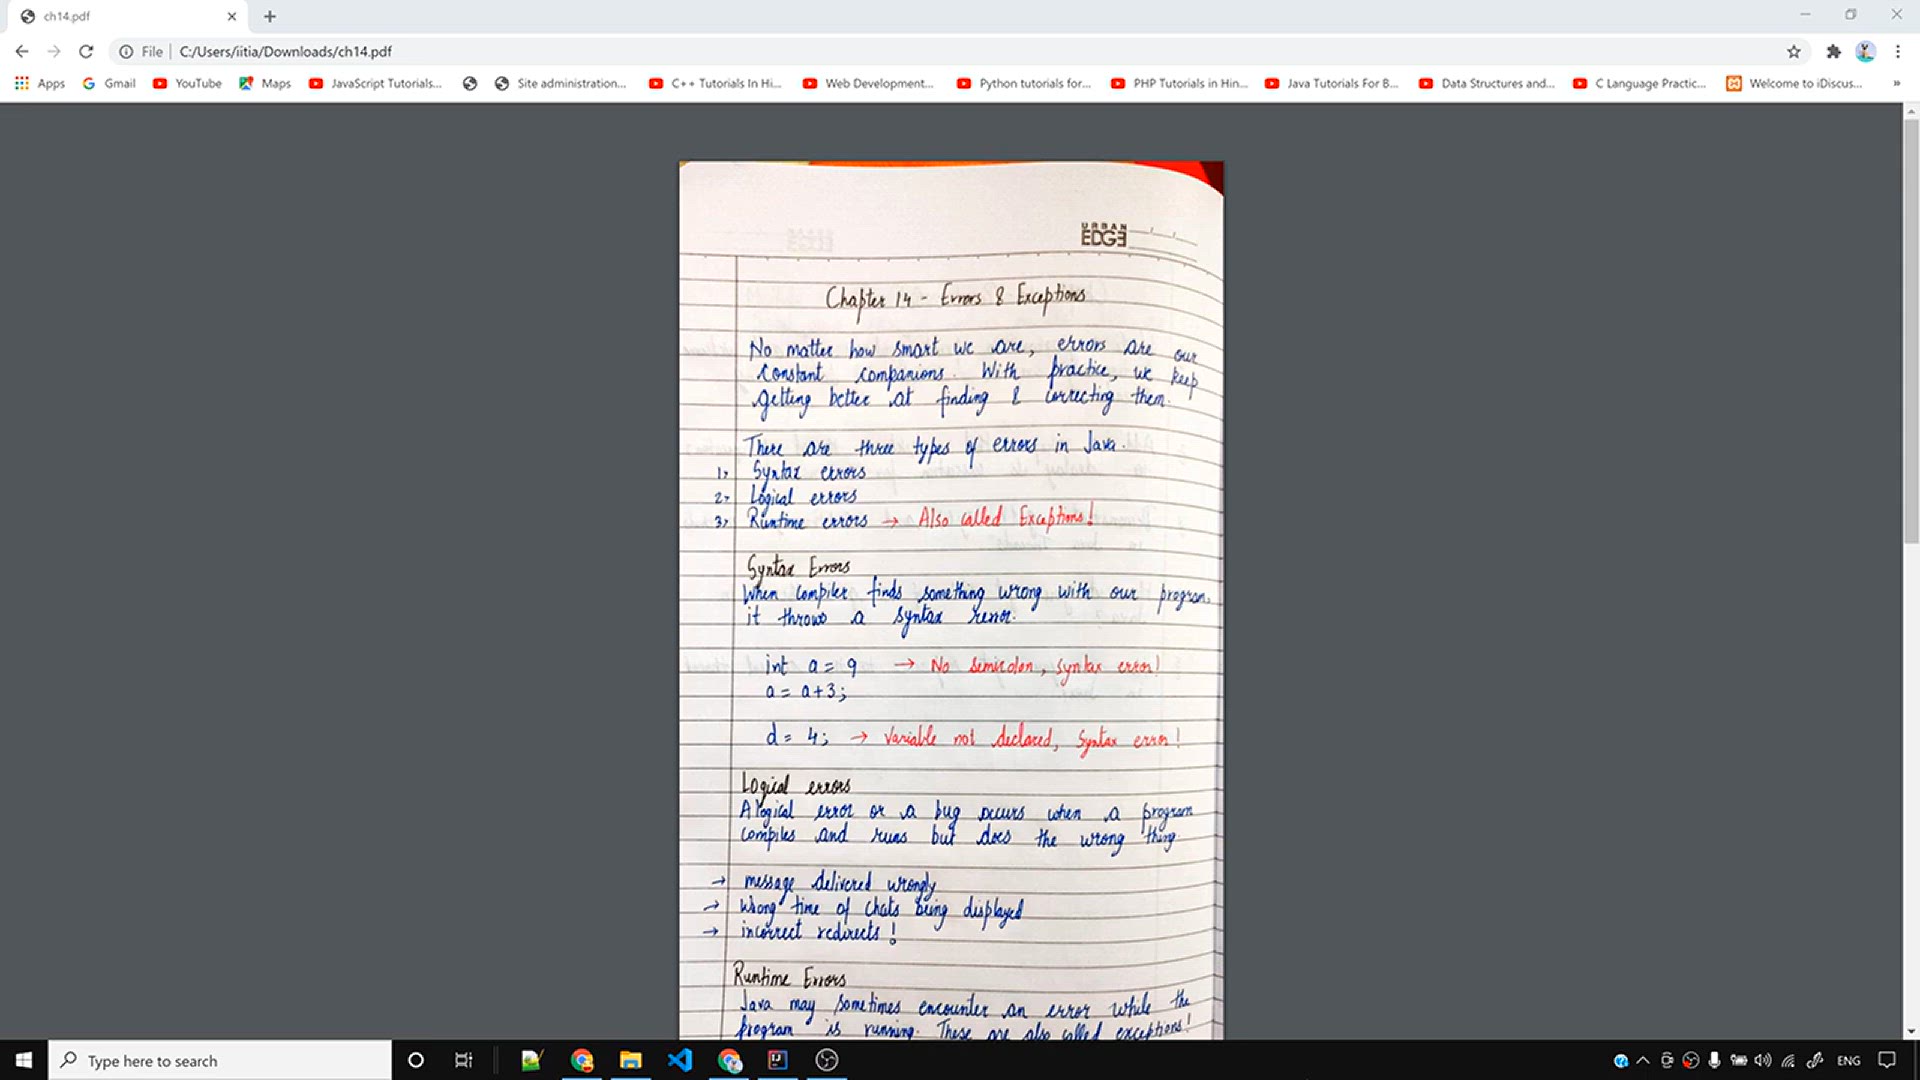 ch14.pdf
File C:/Users/iitia/Downloads/ch14.pdf
Apps Gmail YouTube Maps JavaScript Tutorials... Site administration... C++ Tutorials In Hi... Web Development... Python tutorials for... PHP Tutorials in Hin... Java Tutorials For B... Data Structures and... C Language Practic... Welcome to iDiscus... »
URBAN
EDGE
Chapter 14 - Errors & Exceptions
No matter how smart we are, errors are our
constant companions. With practice, we keep
getting better at finding & correcting them.
There are three types of errors in Java.
1> Syntax errors
2> Logical errors
3> Runtime errors → Also called Exceptions!
Syntax Errors
When compiler finds something wrong with our program,
it throws a syntax rerror.
int a = 9 → No semicolon, syntax error!
a = a+3;
d = 4; → Variable not declared, Syntax error!
Logical errors
A logical error or a bug occurs when a program
compiles and runs but does the wrong thing.
→ message delivered wrongly
→ Wrong time of chats being displayed
→ incorrect redirects!
Runtime Errors
Java may sometimes encounter an error while the
program is running. These are also called exceptions!
Type here to search
ENG